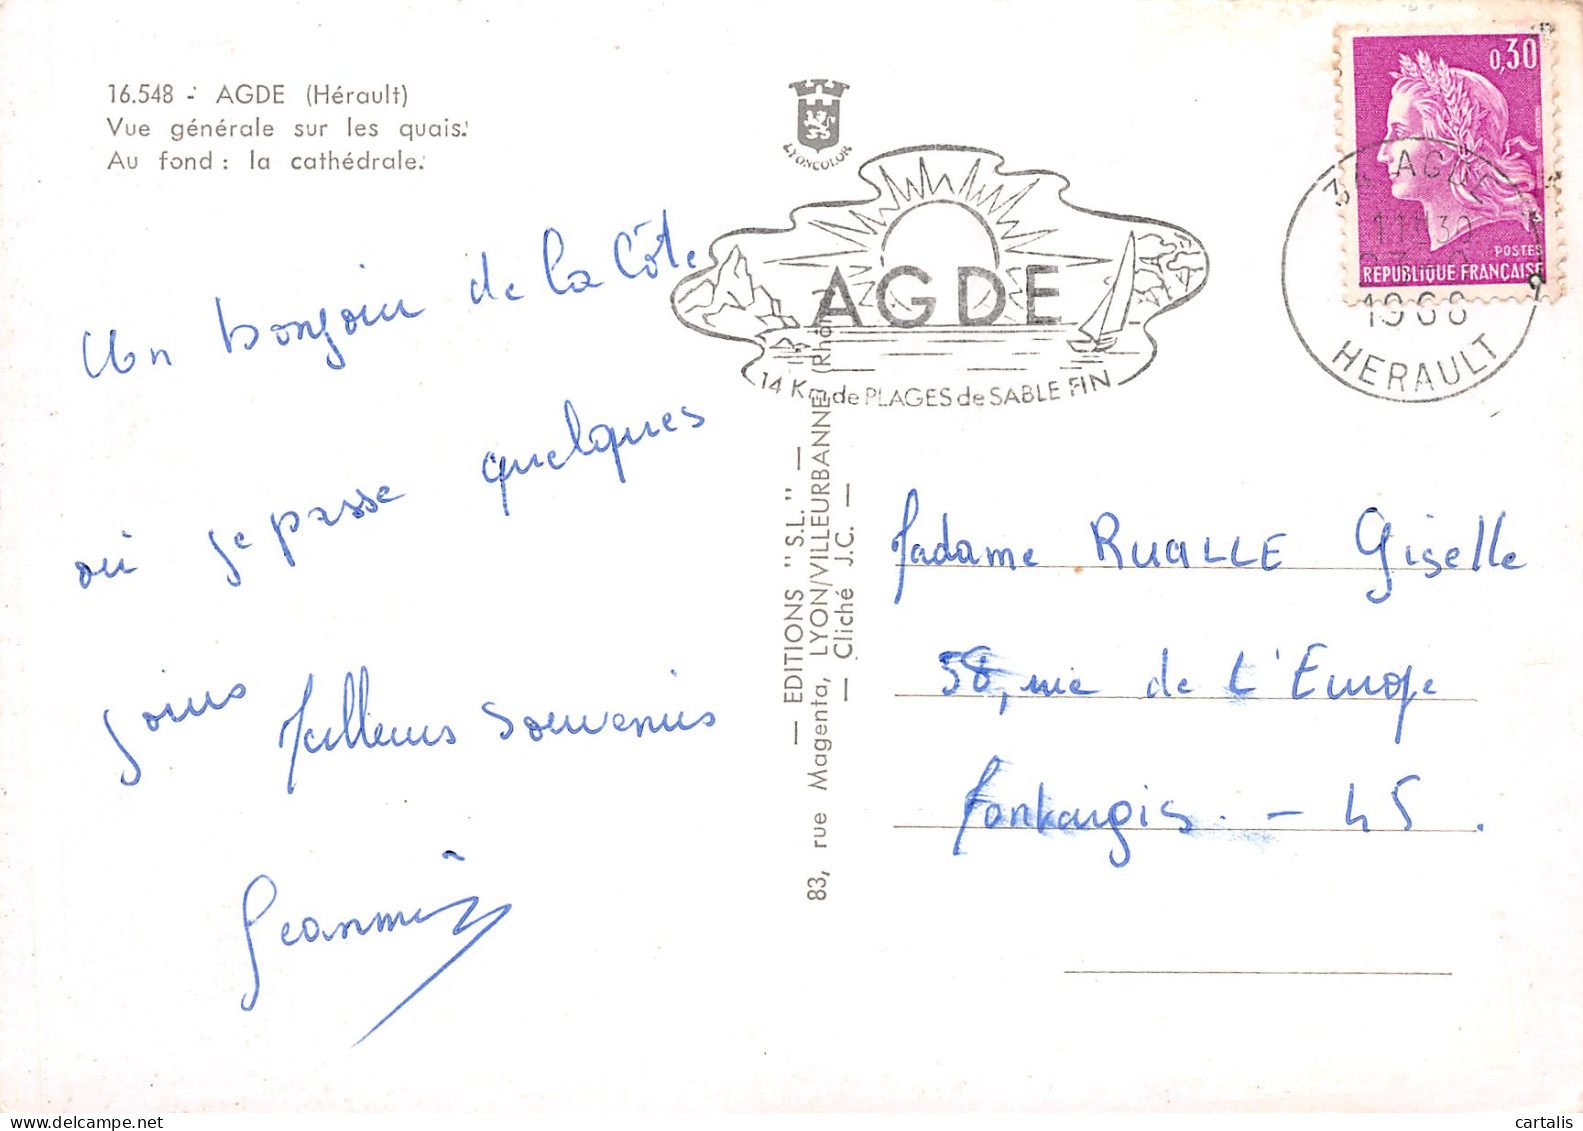 16.548 - AGDE (Hérault)
Vue générale sur les quais.
Au fond : la cathédrale.
Un bonjour de la Côte
où je passe quelques
jours Meilleurs Souvenirs
LYONCOLOR
AGDE
14 Km de PLAGES de SABLE FIN
0,30
POSTES
REPUBLIQUE FRANÇAISE
34 AGDE
11H30
1968
HERAULT
— EDITIONS "S.L." —
83, rue Magenta, LYON/VILLEURBANNE (Rhône)
— Cliché J.C. —
Madame RUALLE Giselle
58, rue de L'Europe
Montargis. — 45.
cartalis